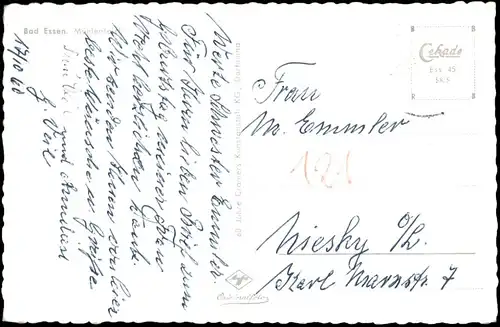 Bad Essen.
17/10 60
Werte Schwester Emmler.
Für Ihren lieben Brief zum
Geburtstag meiner Frau
herzlichen Dank.
Wir senden Ihnen von hier
beste Wünsche u Grüße
Ihr
und
G. Veil
60 Jahre Cramers Kunstanstalt KG, Dortmund
Cekade
Bss 45
563
Frau
M. Emmler
121
Niesky O/L.
Karl Marxstr. 7